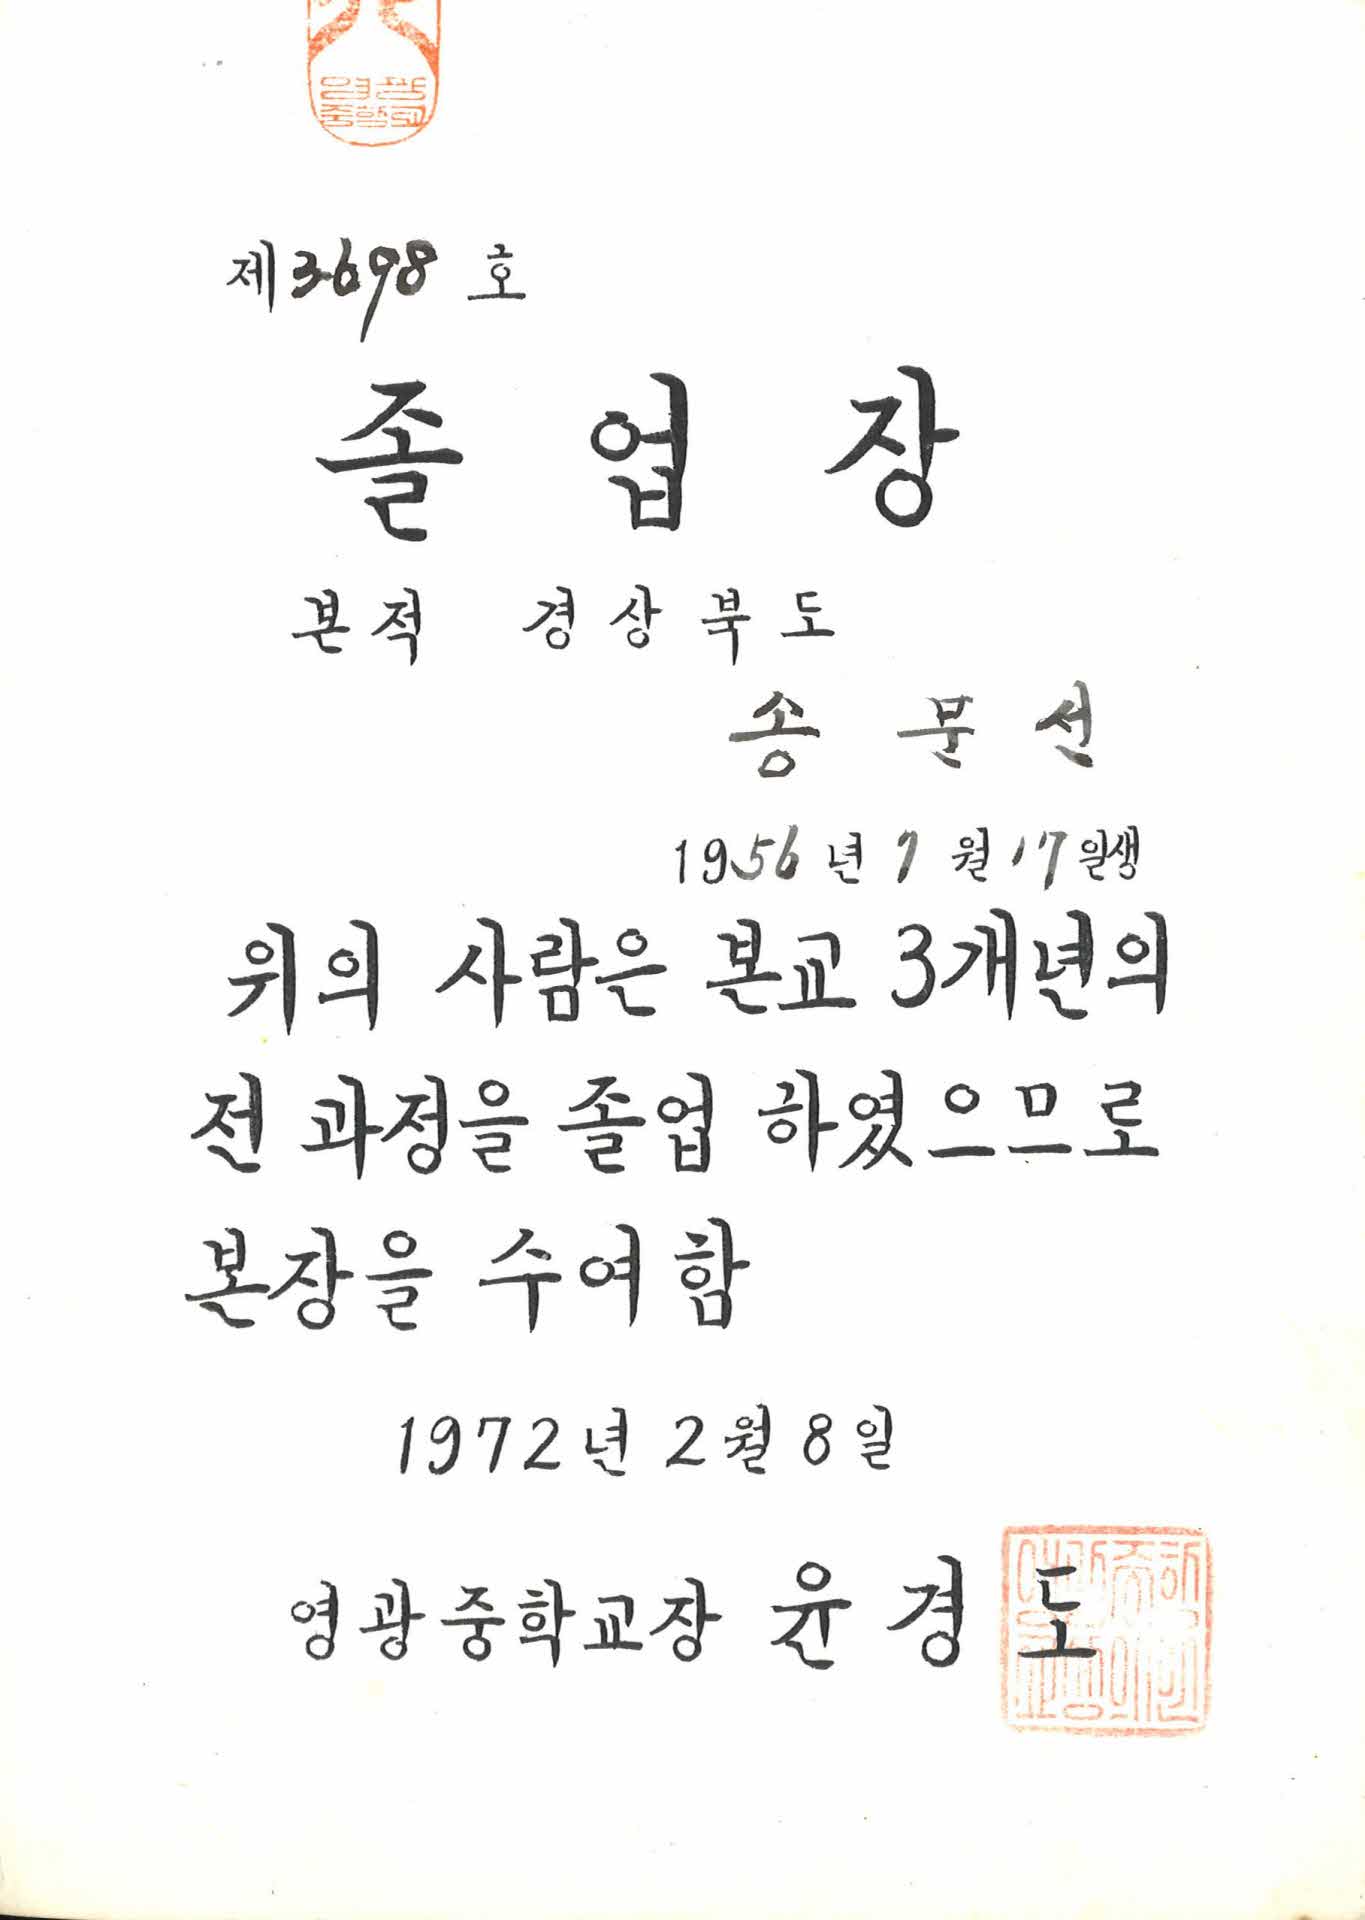 영광
중학교
제3698호
졸업장
본적 경상북도
송문선
1956년 7월 17일생
위의 사람은 본교 3개년의
전 과정을 졸업 하였으므로
본장을 수여함
1972년 2월 8일
영광중학교장 윤경도